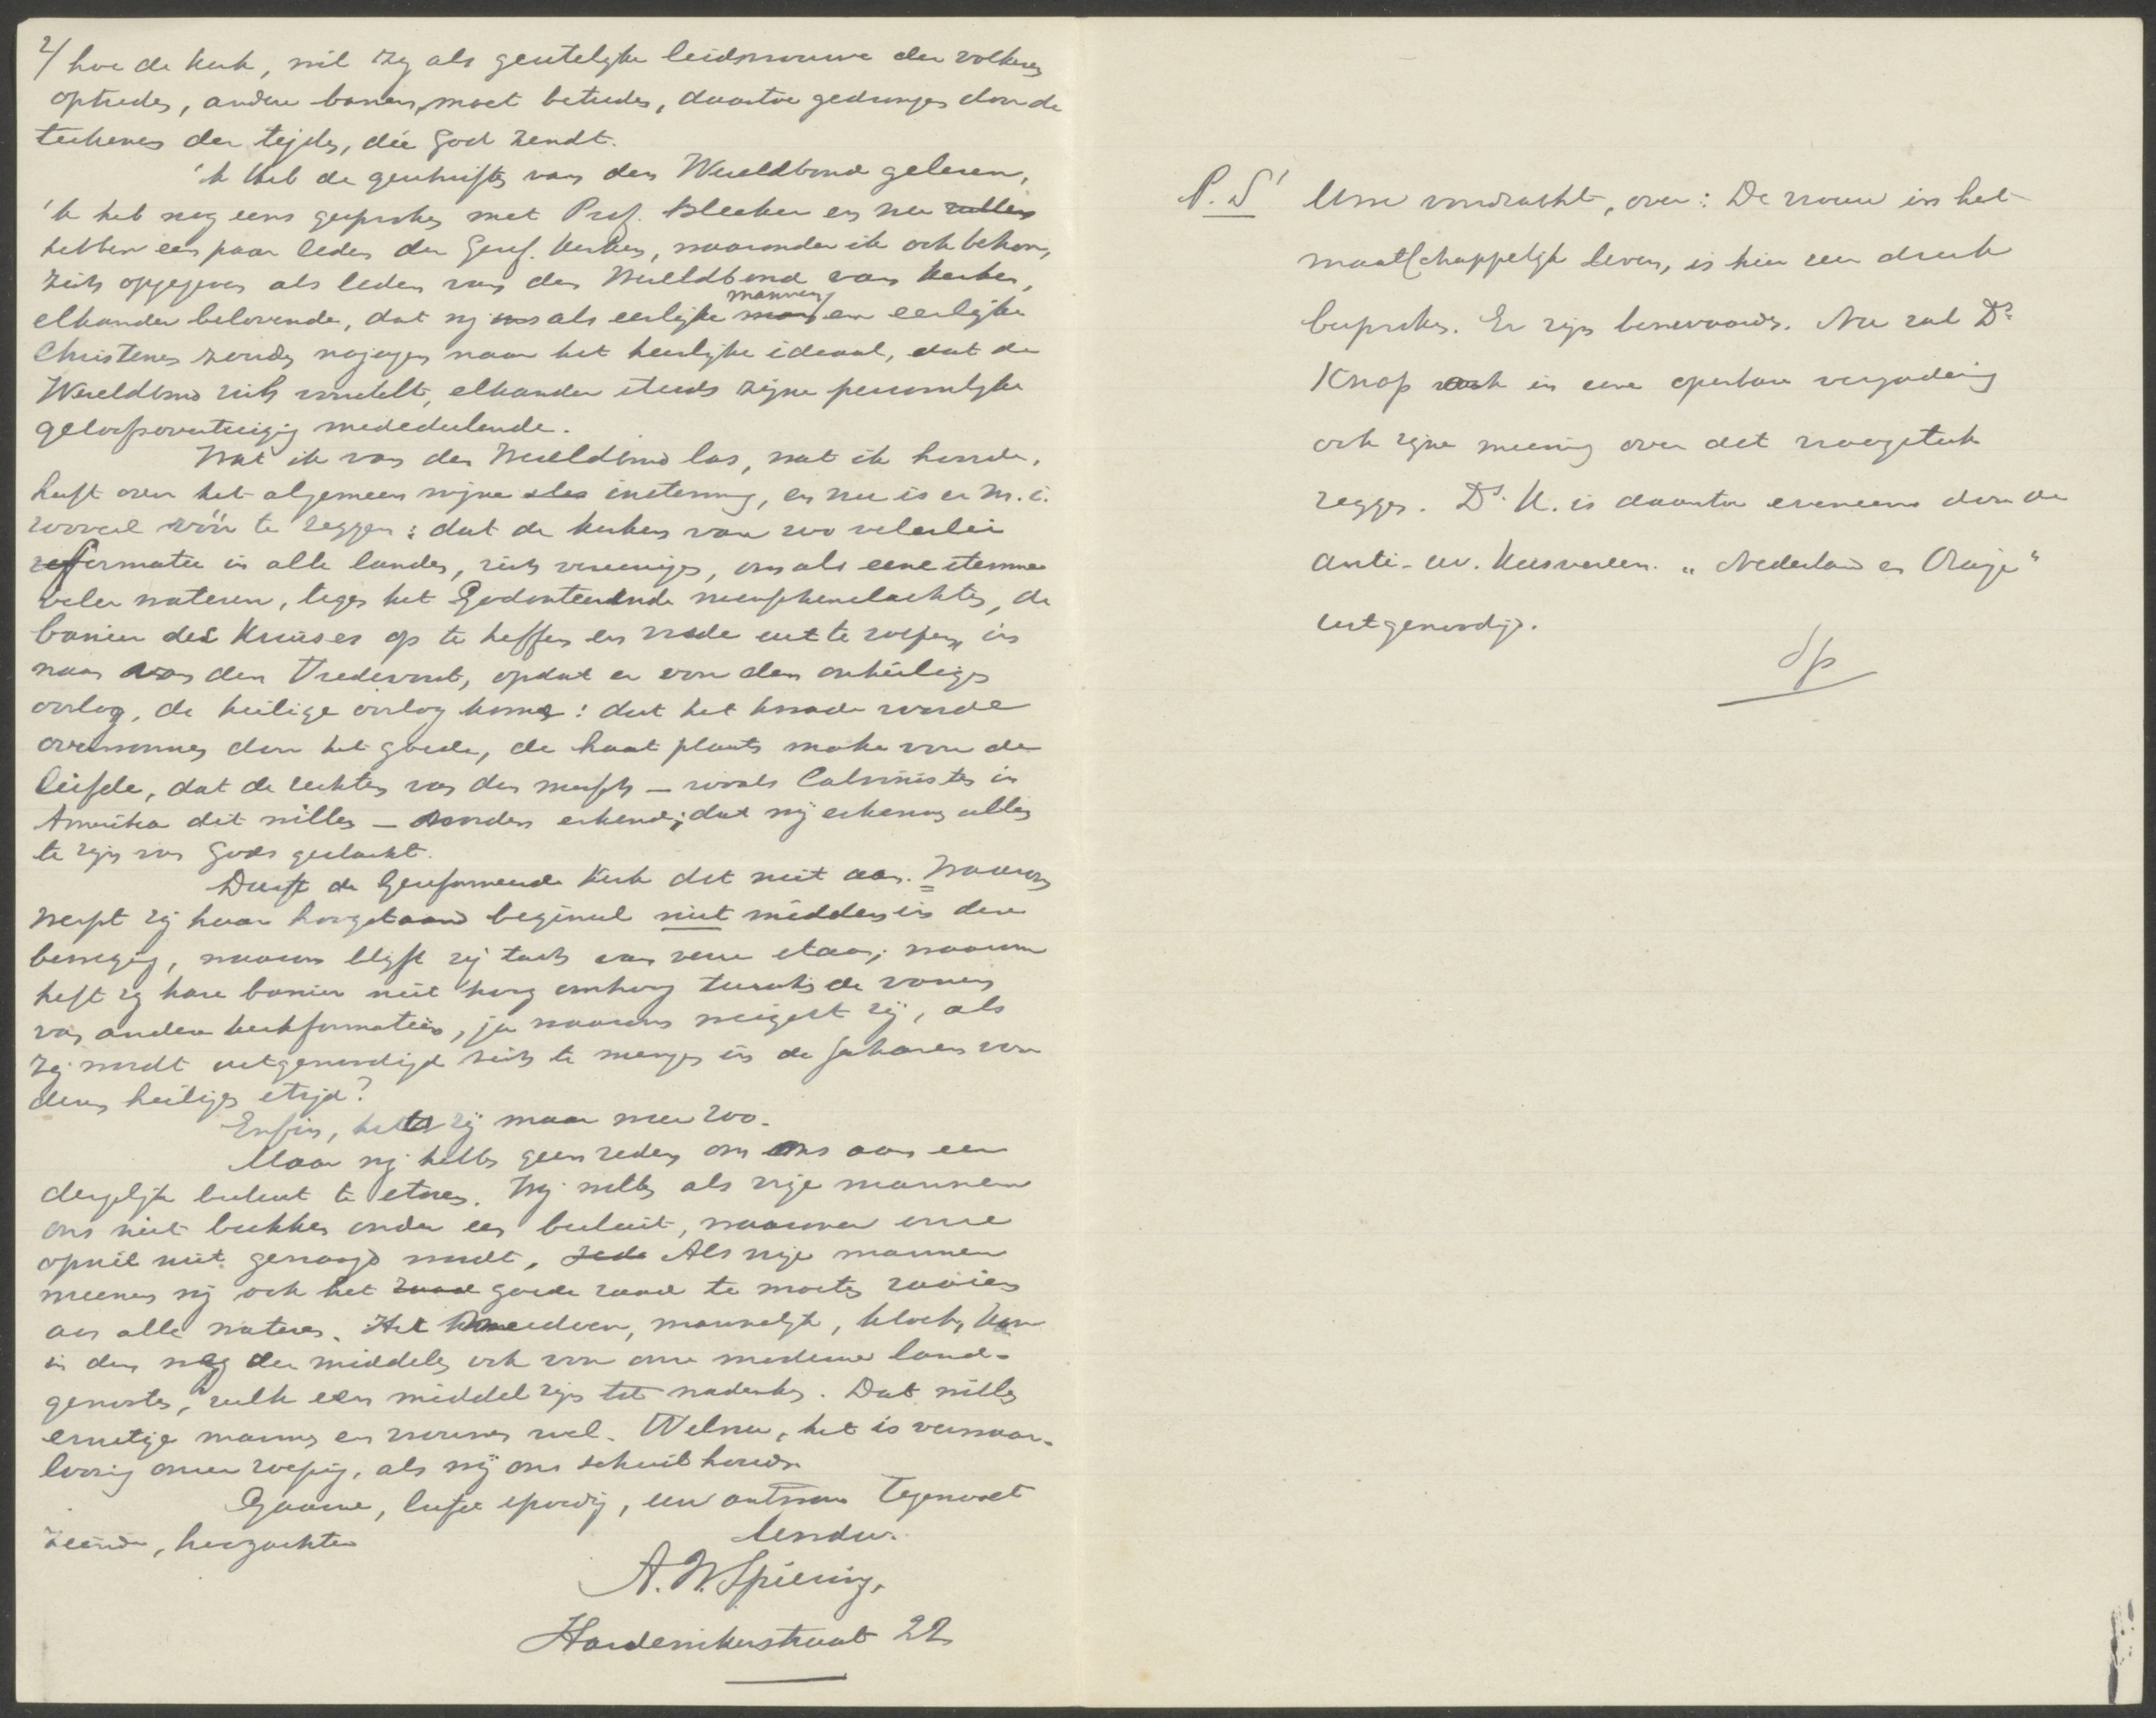 2/ hoe de kerk, wil zij als geestelijke leidsvrouwe der volkeren
optreden, andere banen moet betreden, daartoe gedrongen door de
teekenen der tijden, die God zendt.
'k Heb de geschriften van den Wereldbond gelezen,
'k heb nog eens gesproken met Prof. Bleeker en nu zullen
hebben een paar leden der Geref. Kerken, waaronder ik ook behoor,
zich opgegeven als leden van den Wereldbond van Kerken,
elkander belovende, dat wij ons als eerlijke mannen en eerlijke
Christenen zouden najagen naar het heerlijke ideaal, dat de
Wereldbond zich voorstelt, elkander steeds zijne persoonlijke
geloofsovertuiging mededeelende.
Wat ik van den Wereldbond las, wat ik hoorde,
heeft over het algemeen mijne instemming, en nu is er m.i.
zooveel vóór te zeggen: dat de kerken van zoo velerlei
formatie in alle landen, zich vereenigen, om als eene stemme
veler wateren, tegen het Godonteerende menschenslachten, de
banier des Kruises op te heffen en vrede uit te roepen, in
naam van den Vredevorst, opdat er voor den onheiligen
oorlog, de heilige oorlog kome: dat het kwade worde
overwonnen door het goede, de haat plaats make voor de
liefde, dat de rechten van den mensch — zooals Calvinisten in
Amerika dit willen — worden erkend; dat wij erkennen allen
te zijn van Gods geslacht.
Durft de Gereformeerde Kerk dit niet aan. Waarom
werpt zij haar hoogstaand beginsel niet midden in deze
beweging, waarom blijft zij toch van verre staan; waarom
heft zij hare banier niet hoog omhoog tusschen de vanen
van andere kerkformaties, ja waarom weigert zij, als
zij wordt uitgenoodigd zich te mengen in de scharen voor
dezen heiligen strijd?
Enfin, het zij maar nu zoo.
Maar wij hebben geen reden om ons aan een
dergelijk besluit te storen. Wij willen als vrije mannen
ons niet bukken onder een besluit, waarover onze
opinie niet gevraagd wordt. Als vrije mannen
meenen wij ook het goede zaad te moeten zaaien
aan alle wateren. Het meedoen, mannelijk, kloek, kan
in den weg der middelen ook voor onze moderne land-
genooten, zulk een middel zijn tot nadenken. Dat willen
ernstige mannen en vrouwen wel. Welnu, het is verwaar-
loozing onzer roeping, als wij ons schuil houden.
Gaarne, liefst spoedig, uw antwoord tegemoet
ziende, hoogachtend
Uw dw.
A. W. Spiering,
Harderwijkerstraat 22
P.S. Uwe voordracht, over: De vrouw in het
maatschappelijk leven, is hier zeer druk
besproken. Er zijn bezwaren. Nu zal Ds.
Knap in eene openbare vergadering
ook zijne meening over dit vraagstuk
zeggen. Ds. K. is daartoe eveneens door de
anti-rev. Kiesvereen. „Nederland en Oranje"
uitgenoodigd.
Sp